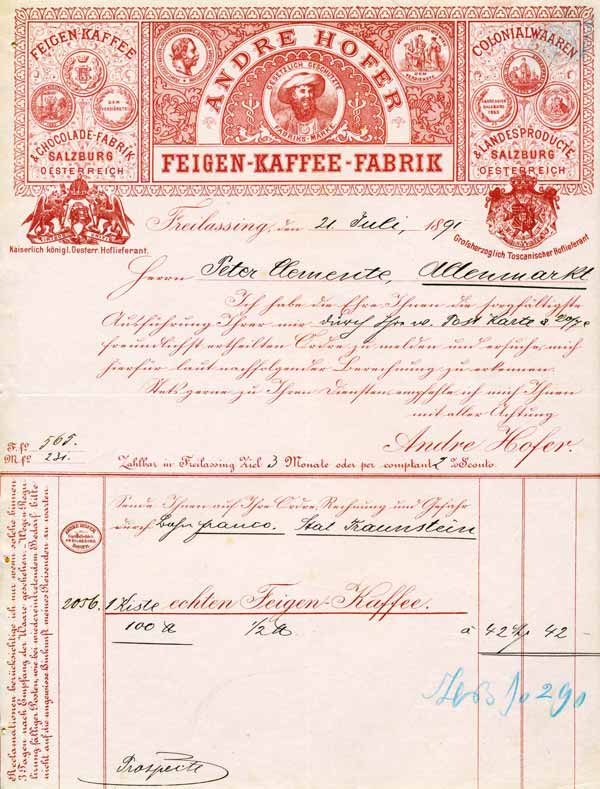 FEIGEN-KAFFEE
& CHOCOLADE-FABRIK
SALZBURG
OESTERREICH
ANDRE HOFER
GESETZLICH GESCHÜTZTE
FABRIKS-MARKE
FEIGEN-KAFFEE-FABRIK
COLONIALWAAREN
& LANDESPRODUCTE
SALZBURG
OESTERREICH
DEM VERDIENSTE
Kaiserlich königl. Oesterr. Hoflieferant.
Großherzoglich Toscanischer Hoflieferant
Freilassing, den 21 Juli, 1891
Herrn Peter Clemente, Altenmarkt
Ich habe die Ehre Ihnen die sorgfältigste
Ausführung Ihrer mir durch Ihre w. Post Karte a 20/7 c
freundlichst ertheilten Ordre zu melden und ersuche mich
hierfür laut nachfolgender Berechnung zu erkennen.
Stets gerne zu Ihren Diensten, empfehle ich mich Ihnen
mit aller Achtung
Andre Hofer.
F. fo 565.
M. fo 231.
Zahlbar in Freilassing Ziel 3 Monate oder per comptant 2 % Sconto.
Sende Ihnen auf Ihre Ordre, Rechnung und Gefahr
durch Bahn franco. Stat Traunstein
ANDRE HOFER
2056. 1 Kiste echten Feigen-Kaffee.
100 1/2 à 42 42 —
Prospecte
Reclamationen berücksichtige ich nur wenn solche binnen
3 Tagen nach Empfang der Waare geschehen. — Wegen Regu
lirung fälliger Posten, wie bei wiedereintretendem Bedarf bitte
nicht auf die ungewisse Ankunft meines Reisenden zu warten.